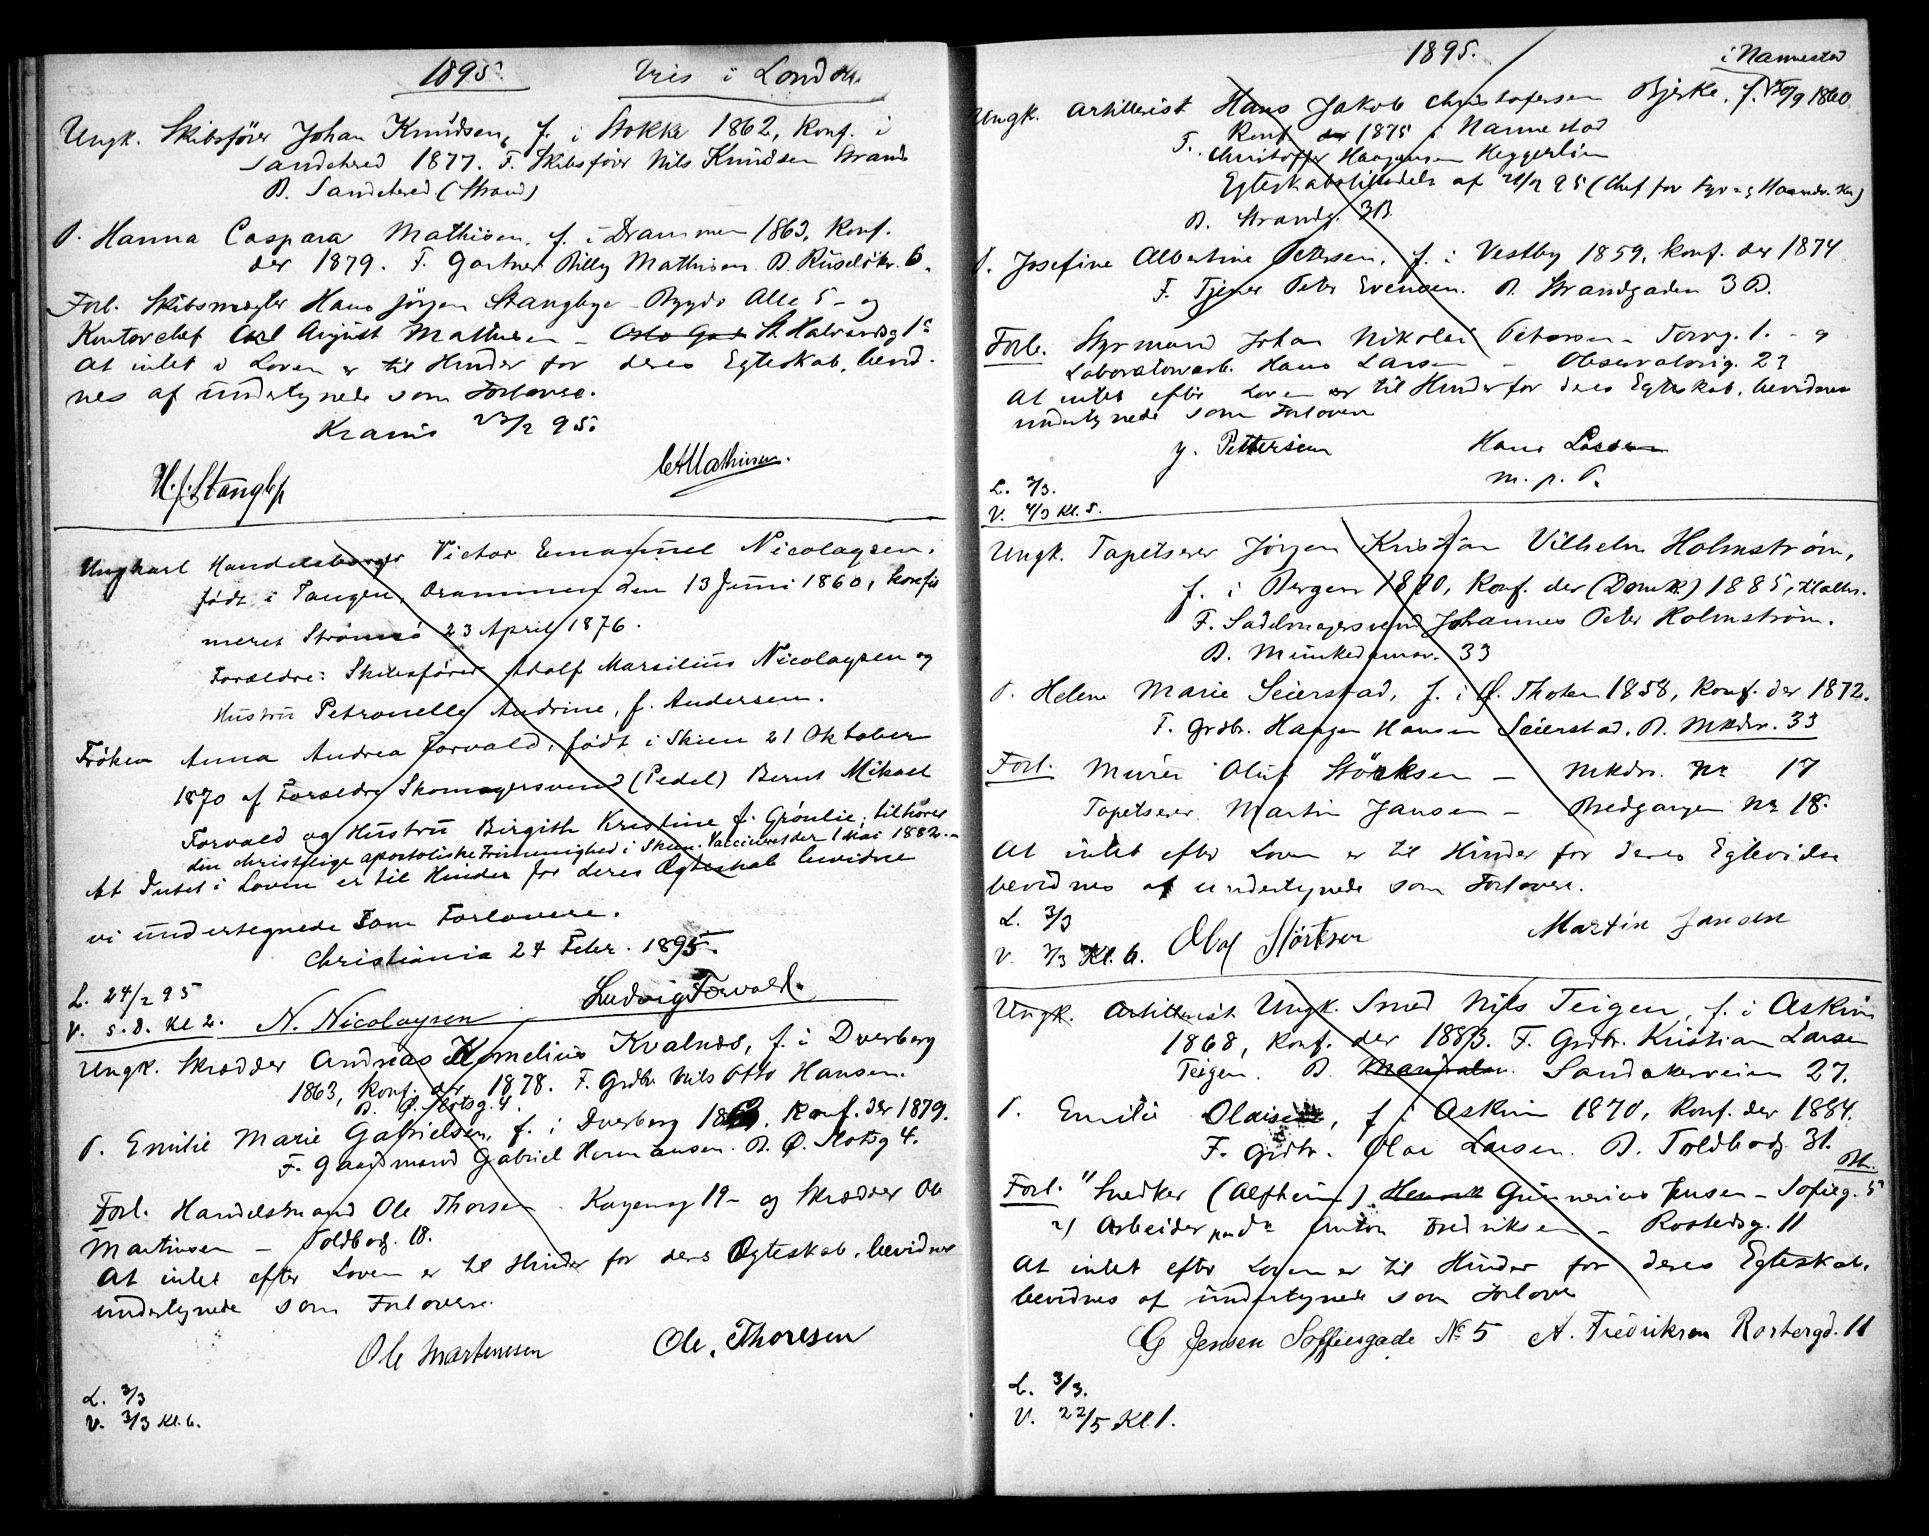 1895. Vies i London
Ungk. Skibsfører Johan Knudsen, f. i Stokke 1862, Konf. i
Sandehered 1877. F. Skibsfører Nils Knudsen Strand
B. Sandehered (Strand)
P. Hanna Caspara Mathisen, f. i Drammen 1863, Konf.
der 1879. F. Gartner Billy Mathisen. B. Ruseløkv. 6.
Forl. Skibsmægler Hans Jörgen Stangbye - Bygdø Alle 5 - og
Kontorchef Carl August Mathisen - Oslo Gad St Halvardsg 1c
At intet i Loven er til Hinder for deres Egteskab, bevid-
nes af undertegnede som Forlovere.
Krania 23/2 95.
H. J. Stangby CAMathisen.
Ungkarl Handelsborger Victor Emanuel Nicolaysen.
født i Tangen, Drammen den 13 Juni 1860, konfir
meret Strømsø 23 April 1876.
Forældre: Skibsfører Adolf Marsilius Nicolaysen og
Hustru Petronelle Andrine, f. Andersen.
Frøken Anna Andrea Forvald, født i Skien 21 Oktober
1870 af Forældre Skomagersvend (Pedel) Bernt Mikael
Forvald og Hustru Birgith Kristine f. Grønlie, tilhører
den christelige apostoliske Frimenighed i Skien. Vaccineret der 1 Mai 1882.
At Intet i Loven er til Hinder for deres Ægteskab bevidne
vi undertegnede som Forlovere.
Christiania 24 Febr. 1895.
L. 24/2 95
V. s. D. Kl 2. N. Nicolaysen Ludvig Forvald.
Ungk. Skrædder Andreas Kornelius Kvalnes, f. i Dverberg
1863, Konf. der 1878. F. Grdbr Nils Otto Hansen.
B. Ø. Slotsg. 4.
P. Emilie Marie Gabrielsen, f. i Dverberg Konf. der 1879.
F. Gaardmand Gabriel Hermansen. B. Ø. Slotsg 4.
Forl. Handelsmand Ole Thorsen - 19 - og Skrædder Ole
Martinsen - Toldbodg. 18.
At intet efter Loven er til Hinder for deres Egteskab, bevidner
undertegnede som Forlovere.
Ole Martinusen Ole, Thoresen
L. 3/3
V. 3/3 Kl. 6.
1895. i Nannestad
Ungk. Artillerist Hans Jakob Christofersen Bjerke, f. 20/9 1860
Konf. 1875 i Nannestad
F. Christoffer Haagensen Heggerlien
Egteskabstilladelse af 21/2 95 (Chef for Fyr- og Haandv. Kn)
B. Strandg. 3B.
P. Josefine Albertine Pettersen, f. i Vestby 1859, Konf. der 1874
F. Tjener Peter Evensen. B. Strandgaden 3B.
Forl. Styrmand Johan Nikolai Petersen - Torvg. 1. - og
Laboratoriearb. Hans Larsen - Observatorieg. 23
At intet efter Loven er til Hinder for deres Egteskab, bevidnes
undertegnede som Forlovere
J. Pettersen Hans Larsen
m. p. P.
L. 3/3.
V. 4/3 Kl. 5.
Ungk. Tapetserer Jörgen Kristian Vilhelm Holmstrøm,
f. i Bergen 1870, Konf. der (Domk.) 1885,
F. Sadelmagersvend Johannes Peter Holmstrøm.
B. Munkedamsv. 33
P. Helene Marie Seierstad, f. i Ø. Thoten 1858, Konf. der 1872.
F. Grdbr. Haagen Hansen Seierstad. B. Mkdv. 33
Forl. Murer Oluf Störksen - Mkdv. Nr 17
Tapetserer Martin Jansen - Bredgangen Nr 18.
At intet efter Loven er til Hinder for deres Egtevidse
bevidnes af undertegnede som Forlovere.
L. 3/3
V. 3/3 Kl. 6. Olaf Störksen Martin Jansen
Ungk. Artillerist Ungk. Smed Nils Teigen, f. i Askim
1868, Konf. der 1883. F. Grdbr. Kristian Larsen
Teigen. B. Sandakerveien 27.
P. Emilie Olaisen, f. i Askim 1870, Konf. der 1884.
F. Grdbr. Olai Larsen. B. Toldbodg 31.
Forl. 1) Snedker (Alfheim) Henrik Gunnerius Jensen - Sofieg. 5
2) Arbeider Anton Fredriksen - Rostedsg. 11
At intet efter Loven er til Hinder for deres Egteskab,
bevidnes af undertegnede som Forlovere
G Jensen Soffiesgade No 5 A. Fredriksen Rostergd. 11
L. 3/3.
V. 22/5 Kl. 1.